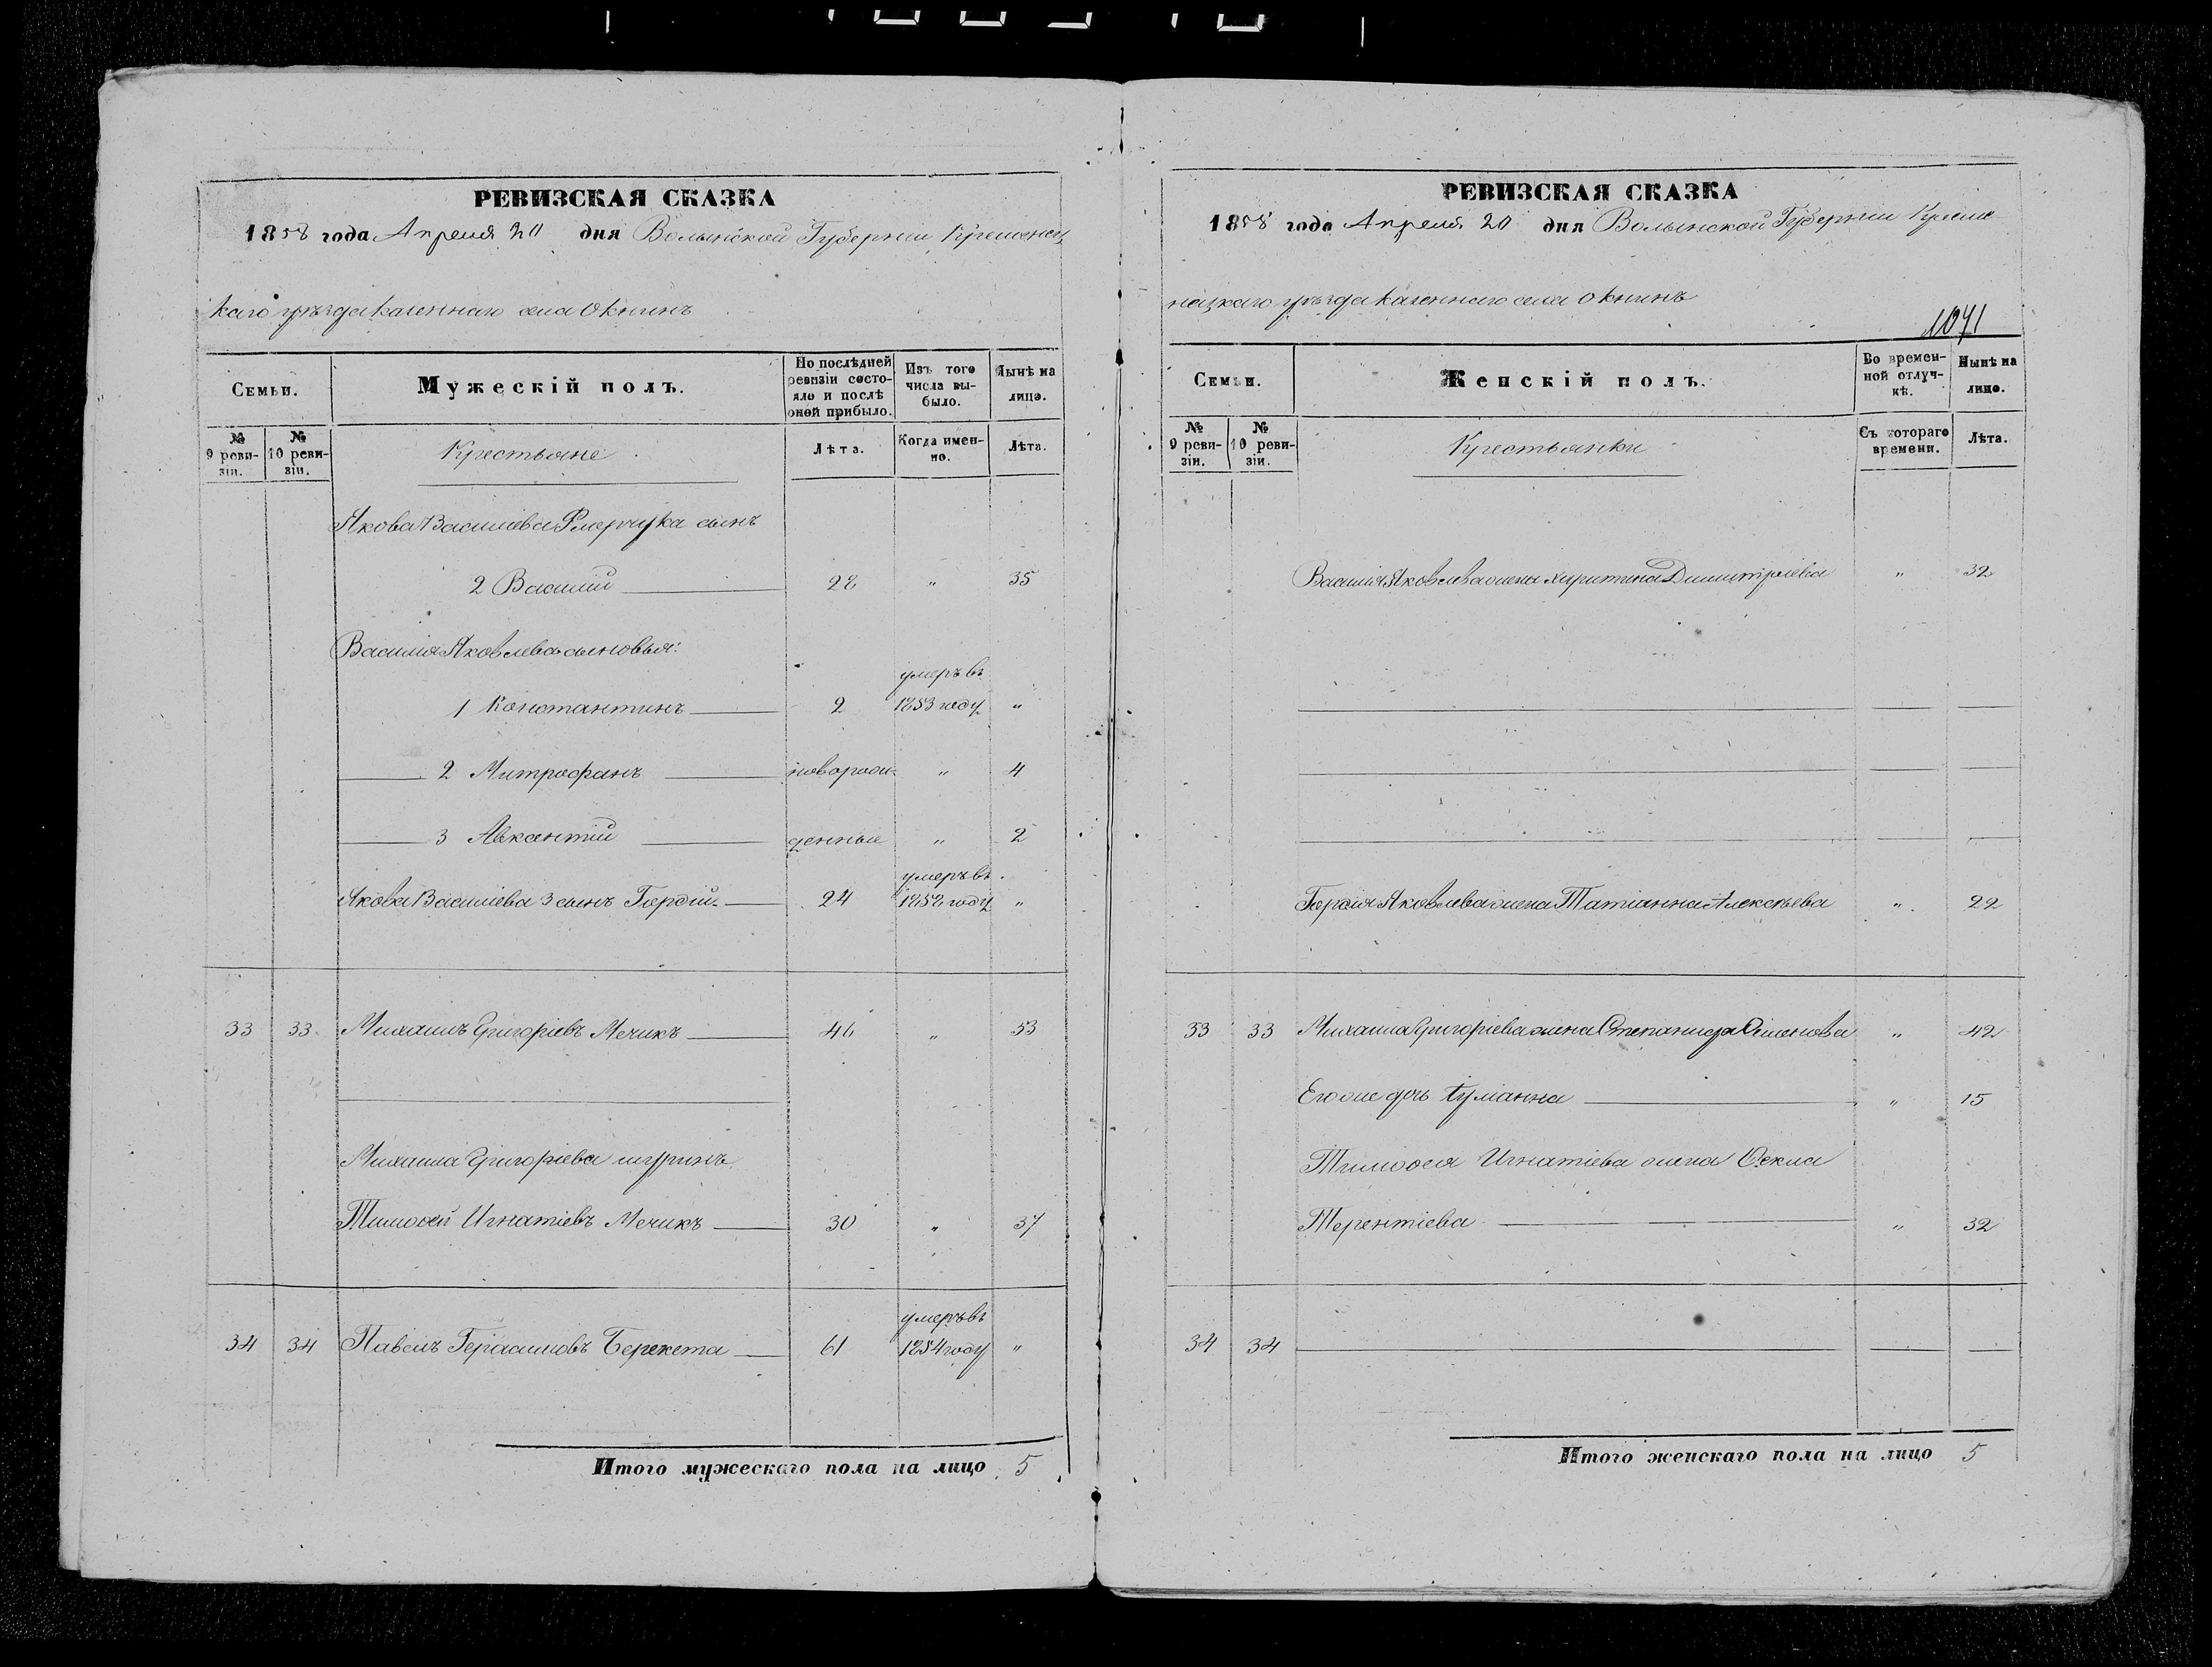 РЕВИЗСКАЯ СКАЗКА
1858 года Апреля 20 дня Волынской Губернии Кременец
каго уѣзда казеннаго села Окнинъ
Семьи.
Мужескій полъ.
По послѣдней ревизіи состояло и послѣ оной прибыло.
Изъ того числа выбыло.
Нынѣ на лицо.
№ 9 ревизіи.
№ 10 ревизіи.
Крестьяне
Лѣта.
Когда именно.
Лѣта.
Якова Василіева сынъ
2 Василій 28 " 35
Василія Яковлева сыновья:
умеръ въ
1 Константинъ 2 1853 году "
2 Митрофанъ новорож- " 4
3 Авксентій денные " 2
умеръ въ
Якова Василіева 3 сынъ Гордій 24 1858 году "
33 33 Михаилъ Григоріевъ Мечикъ 46 " 53
Михаила Григоріева шуринъ
Тимоѳей Игнатіевъ Мечикъ 30 " 37
умеръ въ
34 34 Павелъ Герасимовъ Берекета 61 1854 году "
Итого мужескаго пола на лицо 5
РЕВИЗСКАЯ СКАЗКА
1858 года Апреля 20 дня Волынской Губерніи Креме
нецкаго уѣзда казеннаго села Окнинъ
1071
Семьи.
Женскій полъ.
Во временной отлучкѣ.
Нынѣ на лицо.
№ 9 ревизіи.
№ 10 ревизіи.
Крестьянки
Съ котораго времени.
Лѣта.
Василія Яковлева жена Харитина Димитріева " 32
Гордія Яковлева жена Татіанна Алексѣева " 22
33 33 Михаила Григоріева жена Степанида Симонова " 42
Его же дочь Іуліанна " 15
Тимоѳея Игнатіева жена Ѳекла
Терентіева " 32
34 34
Итого женскаго пола на лицо 5